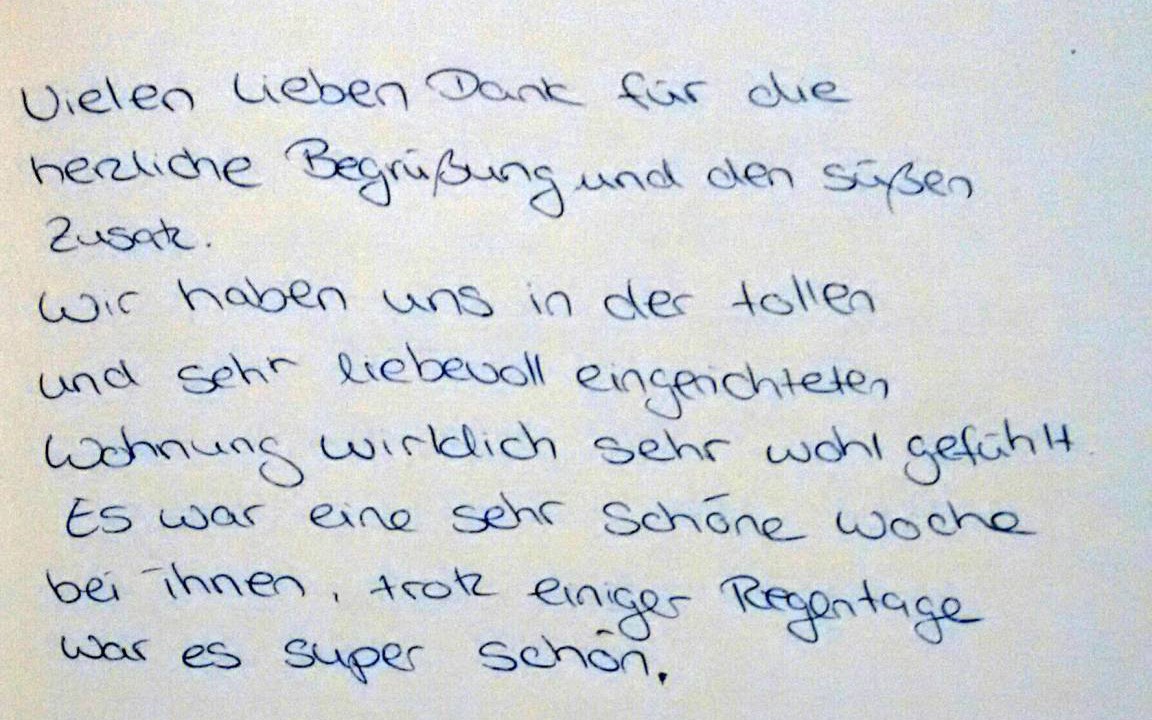 Vielen lieben Dank für die
herzliche Begrüßung und den süßen
Zusatz.
Wir haben uns in der tollen
und sehr liebevoll eingerichteten
Wohnung wirklich sehr wohl gefühlt.
Es war eine sehr schöne Woche
bei ihnen, trotz einiger Regentage
war es super schön.